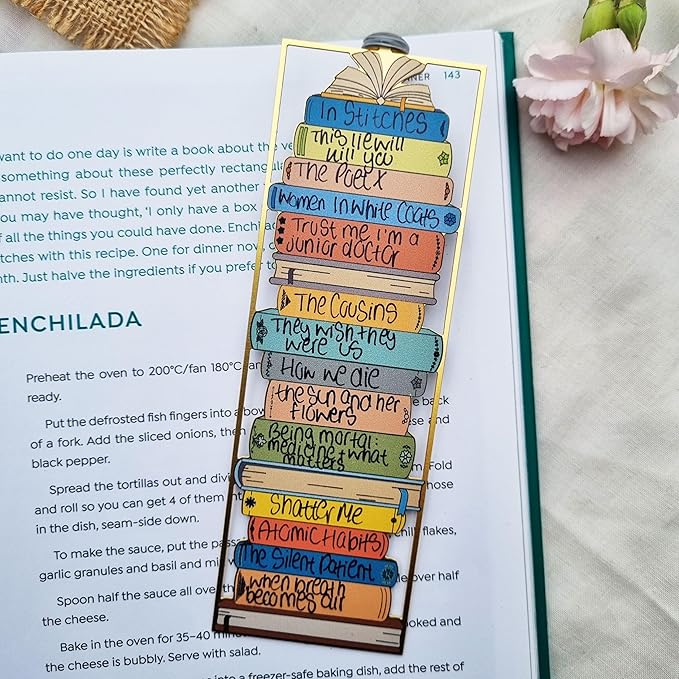 NNER 143
want to do one day is write a book about the ve
something about these perfectly rectangula
annot resist. So I have found yet another
ou may have thought, 'I only have a box
f all the things you could have done. Enchila
tches with this recipe. One for dinner now,
nth. Just halve the ingredients if you prefer to
ENCHILADA
Preheat the oven to 200°C/fan 180°C/
ready.
Put the defrosted fish fingers into a bow
of a fork. Add the sliced onions, then
black pepper.
Spread the tortillas out and divi
and roll so you can get 4 of them
in the dish, seam-side down.
To make the sauce, put the passa
garlic granules and basil and mi
Spoon half the sauce all over th
the cheese.
Bake in the oven for 35–40 min
the cheese is bubbly. Serve with salad.
into a freezer-safe baking dish, add the rest of
back
se and
Fold
hose
chilli flakes,
over half
ooked and
In Stitches
This lie will
kill you
The Poet X
Women In White Coats
Trust me I'm a
junior doctor
The Cousins
They wish they
were us
How we die
the sun and her
flowers
Being mortal:
medicine + what
matters
Shatter Me
Atomic Habits
The Silent Patient
when breath
becomes air